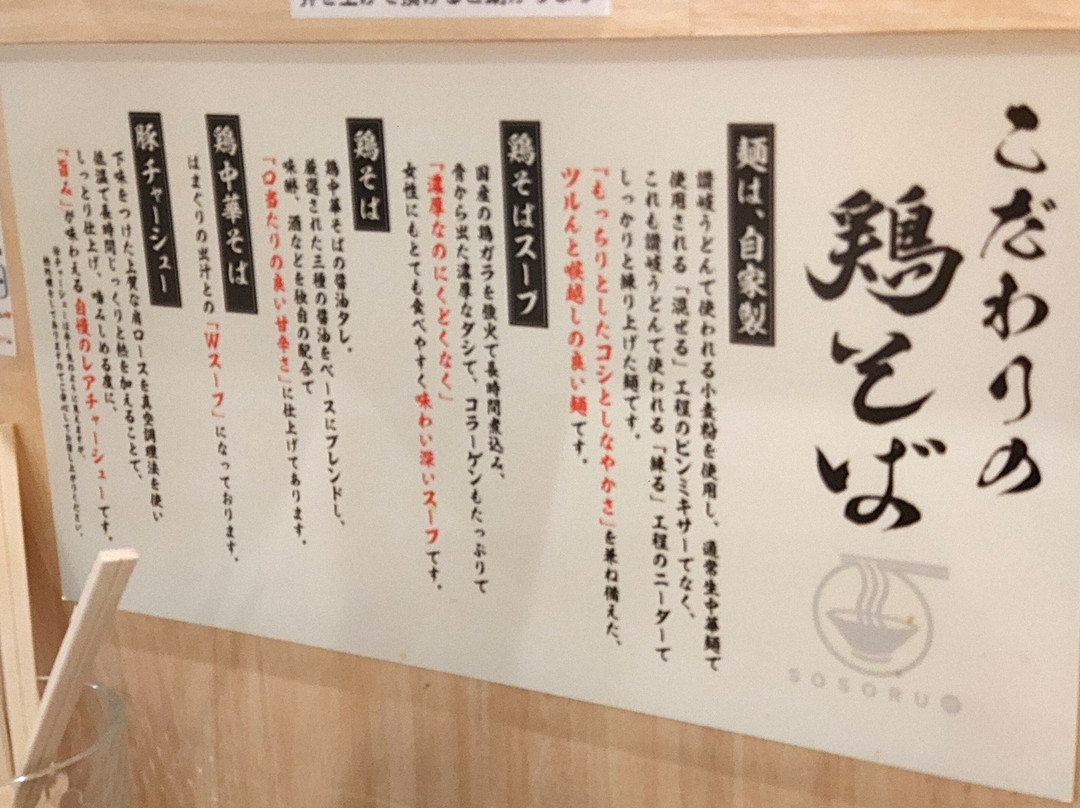 こだわりの
鶏そば
麺は、自家製
讃岐うどんで使われる小麦粉を使用し、通常生中華麺で
使用される「混ぜる」工程のピンミキサーでなく、
これも讃岐うどんで使われる「練る」工程のニーダーで
しっかりと練り上げた麺です。
「もっちりとしたコシとしなやかさ」を兼ね備えた、
ツルんと喉越しの良い麺です。
鶏そばスープ
国産の鶏ガラを強火で長時間煮込み、
骨から出た濃厚なダシで、コラーゲンもたっぷりで
「濃厚なのにくどくなく」
女性にもとても食べやすく味わい深いスープです。
鶏そば
鶏中華そばの醤油タレ、
厳選された三種の醤油をベースにブレンドし、
味醂、酒などを独自の配合で
「口当たりの良い甘辛さ」に仕上げてあります。
鶏中華そば
はまぐりの出汁との「Wスープ」になっております。
豚チャーシュー
下味をつけた上質な肩ロースを真空調理法を使い
低温で長時間じっくりと熱を加えることで、
しっとり仕上げ、噛みしめる度に、
「旨み」が味わえる自慢のレアチャーシューです。
SOSORU